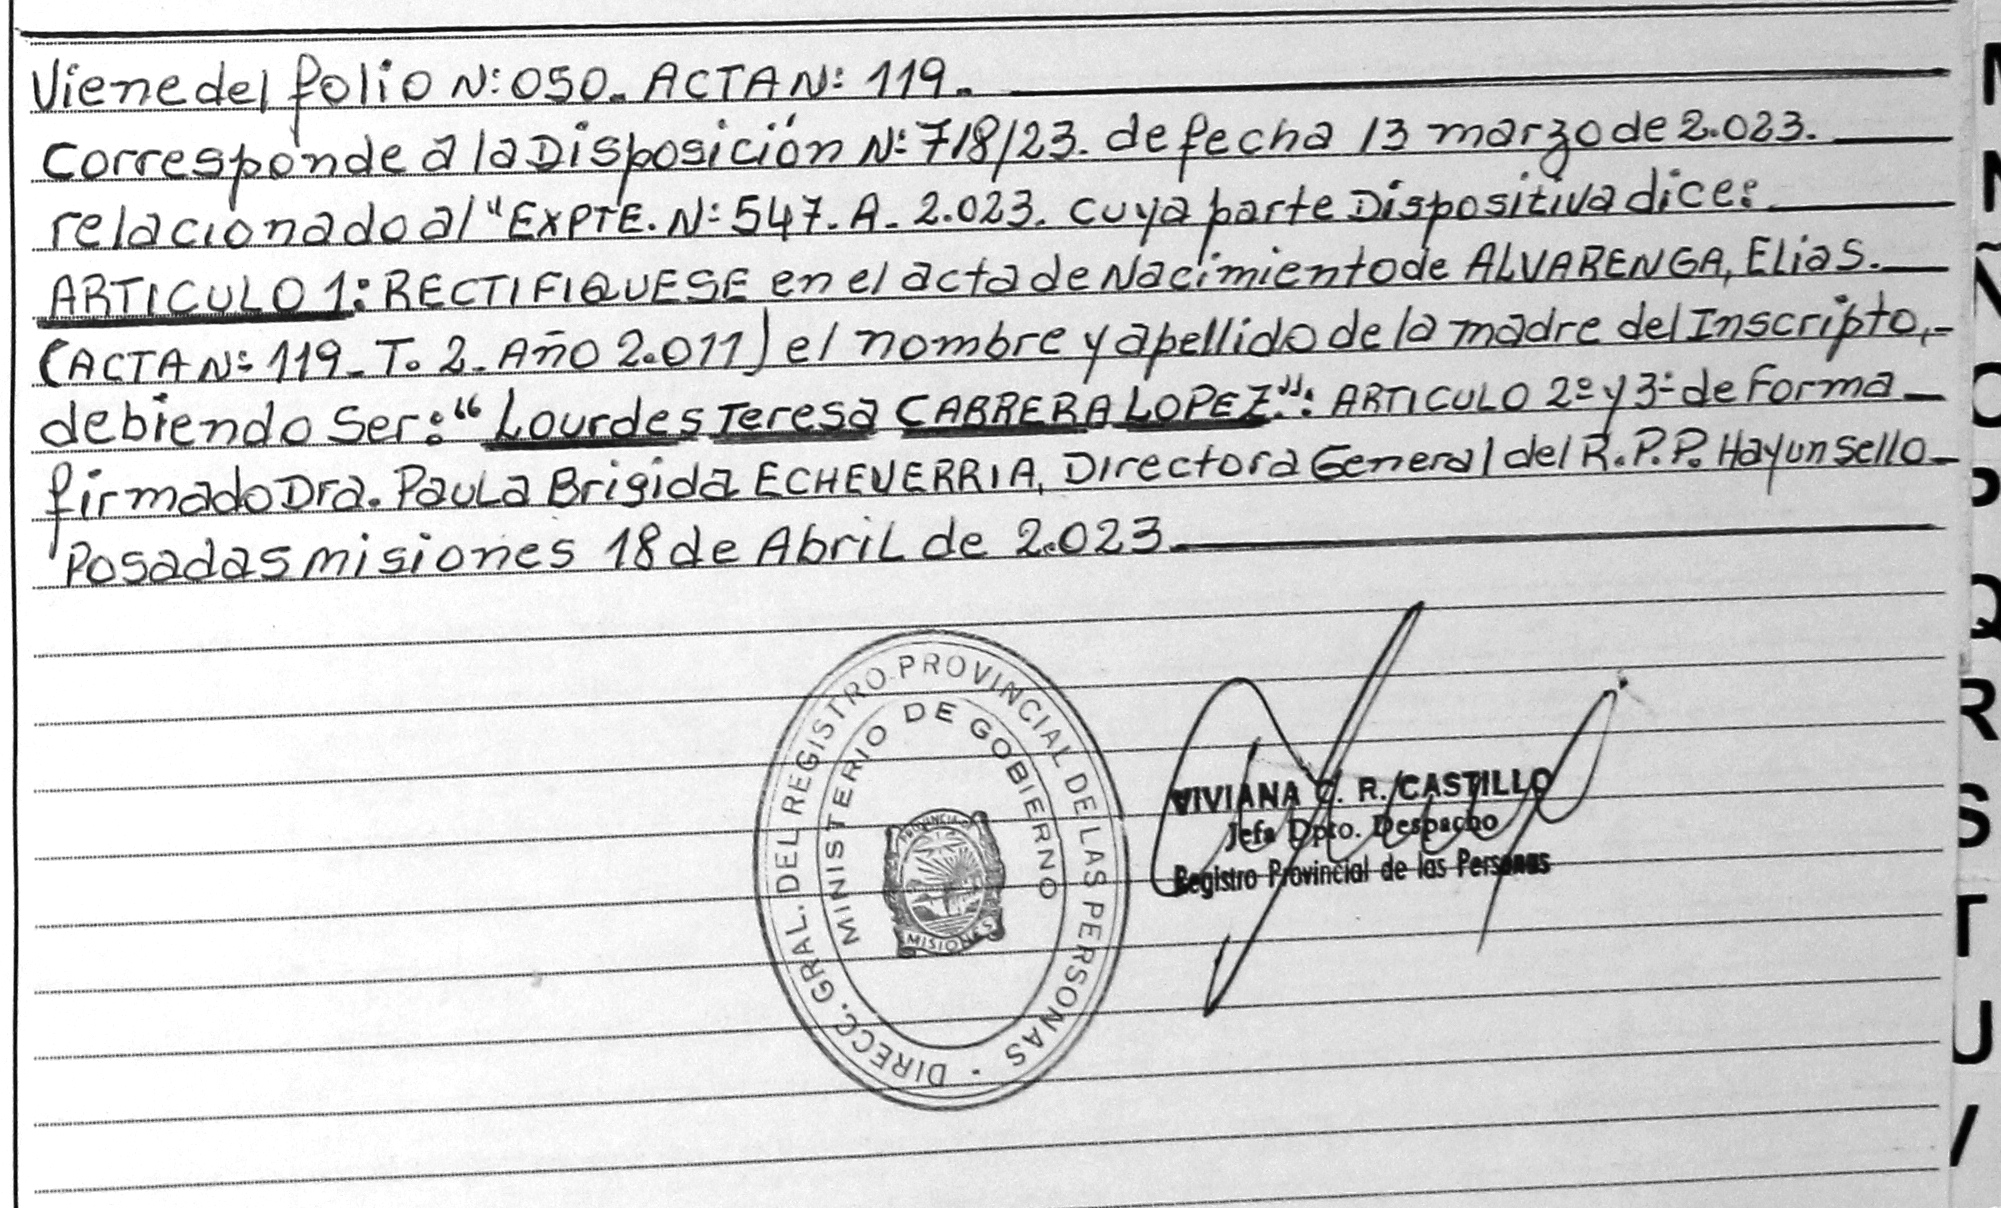 Viene del folio N: 050. ACTA N: 119.
Corresponde a la Disposición N: 718/23. de fecha 13 marzo de 2.023.
relacionado al "EXPTE. N: 547. A. 2.023. cuya parte Dispositiva dice:
ARTICULO 1: RECTIFIQUESE en el acta de Nacimiento de ALVARENGA, Elias.
(ACTA N: 119. T. 2. Año 2.011) el nombre y apellido de la madre del Inscripto,
debiendo Ser: "Lourdes Teresa CABRERA LOPEZ.": ARTICULO 2º y 3º de Forma
firmado Dra. Paula Brigida ECHEVERRIA, Directora General del R.P.P. Hay un sello
Posadas misiones 18 de Abril de 2.023
DIRECC. GRAL. DEL REGISTRO PROVINCIAL DE LAS PERSONAS
MINISTERIO DE GOBIERNO
PROVINCIA DE
MISIONES
VIVIANA C. R. CASTILLO
Jefa Dpto. Despacho
Registro Provincial de las Personas
N
Ñ
O
P
Q
R
S
T
U
V